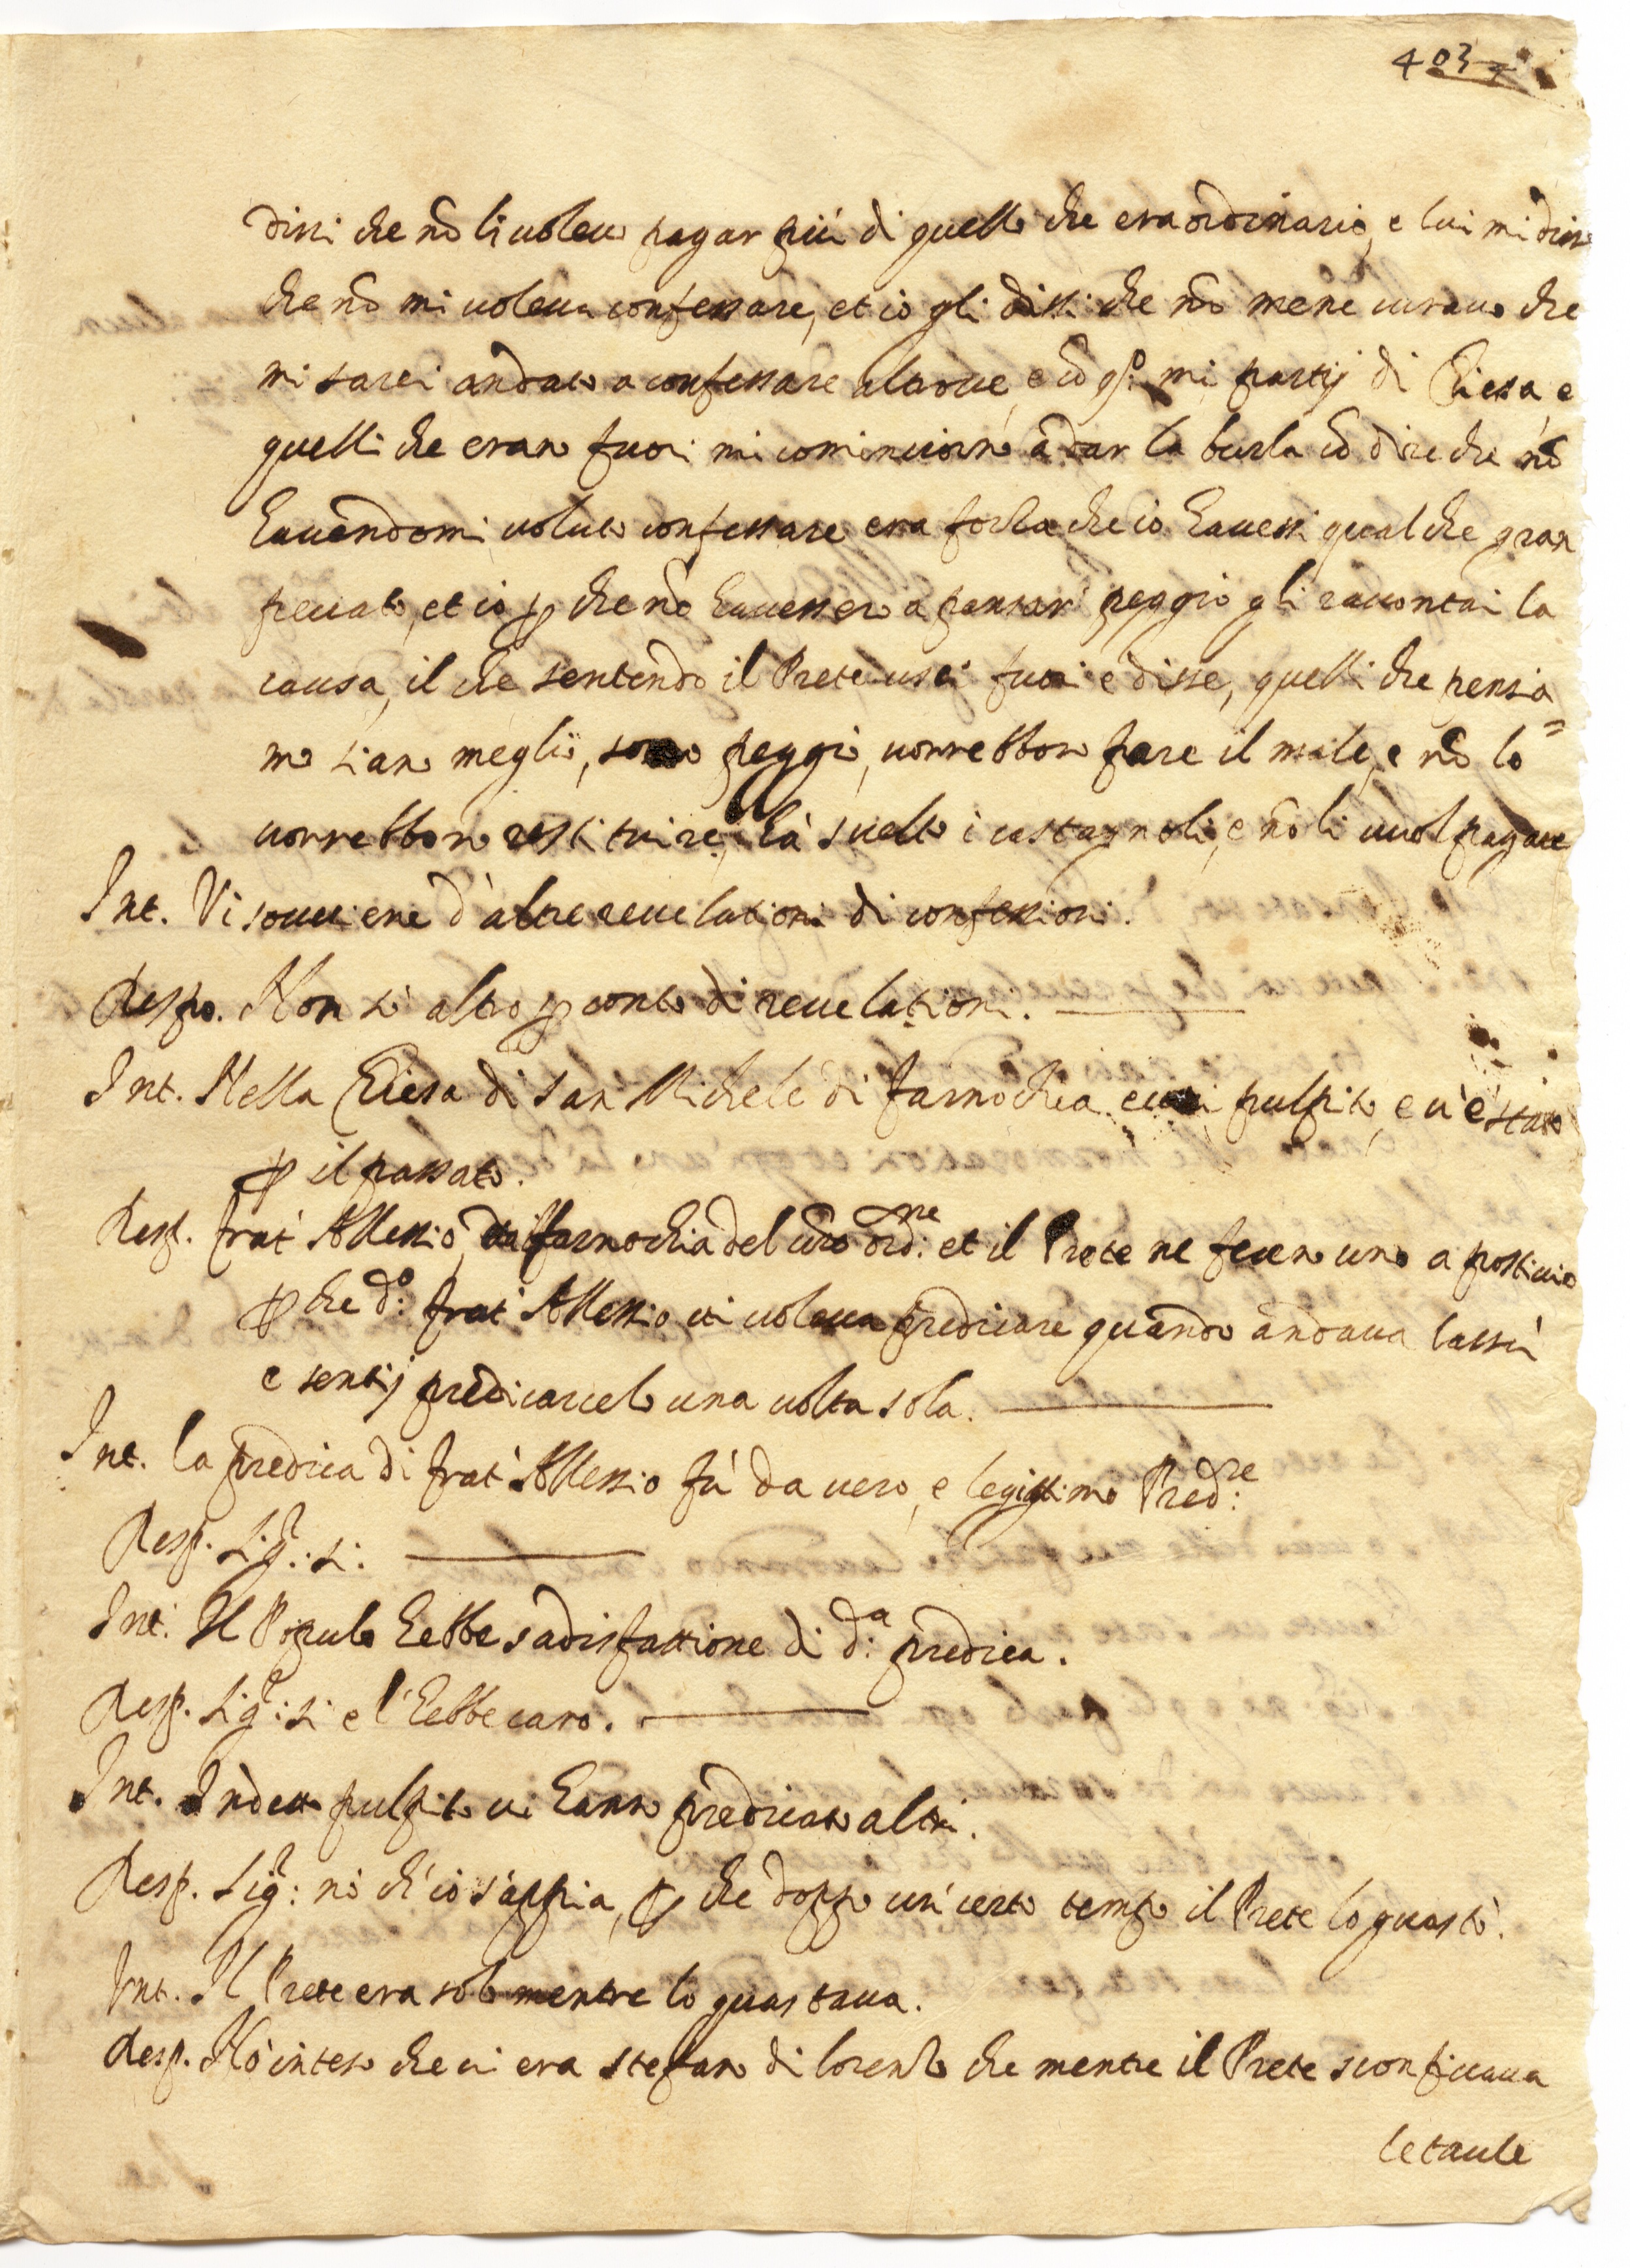 403
dissi che nō li uoleuo pagar più di quello che era ordinario, e lui mi disse
che nō mi uoleua confessare, et io gli dissi che nō mene curauo che
mi sarei andato a confessare altroue, e cō qº: mi partij di Chiesa, e
quelli che erano fuori mi cominciorno à dar la burla cō dire che nō
hauendomi uoluto confessare era forza che io hauessi qualche gran
peccato, et io p che nō hauessero a pensar peggio gli raccontai la
causa, il che sentendo il Prete uscj fuori e disse, quelli che pensia=
mo siano meglio, sono peggio, uorrebbon fare il male, e nō lo
uorrebbono restituire, hà suelto i castagnoli, e nō li uuol pagare
Int. Vi souuiene d'altre reuelationi di confessioni.
Respo. Non sò altro p conto di reuelationi.
Int. Nella Chiesa di San Michele di farnochia euui pulpito, e u'è stato
p il passato.
Resp. frat' Allessio da farnochia del uro ord:ne et il Prete ne fecero uno a posticcio
p che dº: frat' Allessio ui uoleua predicare quando andaua lassù
e sentij predicarcelo una uolta sola.
Int. la predica di frat' Allessio fù da uero, e legittimo Pred:re
Resp. Sig:re si:
Int. Il Popolo hebbe sadisfattione di d:a predica.
Resp. Sig:re si e l'hebbe caro.
Int. In detto pulpito ui hanno predicato altri.
Resp. Sig:re nò ch'io sappia, p che doppo un' certo tempo il Prete lo guastò.
Int. Il Prete era solo mentre lo guastaua.
Resp. Hò inteso che ui era Stefano di lorenzo che mentre il Prete sconficcaua
le taule